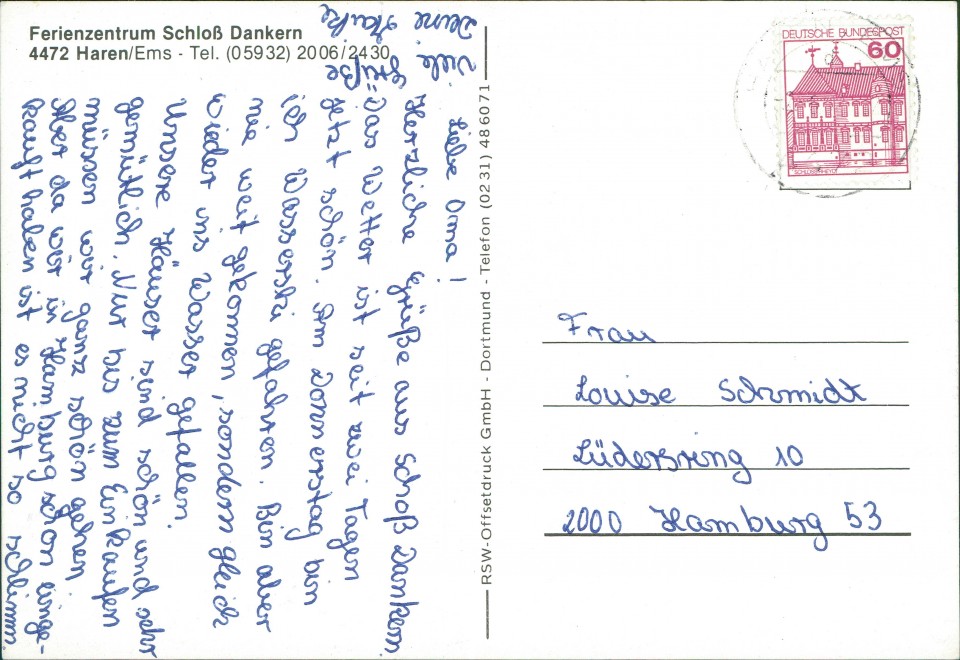 Ferienzentrum Schloß Dankern
4472 Haren/Ems - Tel. (05932) 2006/2430
Liebe Oma!
Herzliche Grüße aus Schoß Dankern.
Das Wetter ist seit zwei Tagen
jetzt schön. Am Donnerstag bin
ich Wasserski gefahren. Bin aber
nie weit gekommen, sondern gleich
wieder ins Wasser gefallen.
Unsere Häuser sind schön und sehr
gemütlich. Nur bis zum Einkaufen
müssen wir ganz schön gehen
Aber da wir in Hamburg schon einge-
kauft haben ist es nicht so schlimm.
Viele Grüße
Deine
RSW-Offsetdruck GmbH - Dortmund - Telefon (0231) 486071
DEUTSCHE BUNDESPOST
60
SCHLOSS RHEYDT
Frau
Louise Schmidt
Lüdersring 10
2000 Hamburg 53